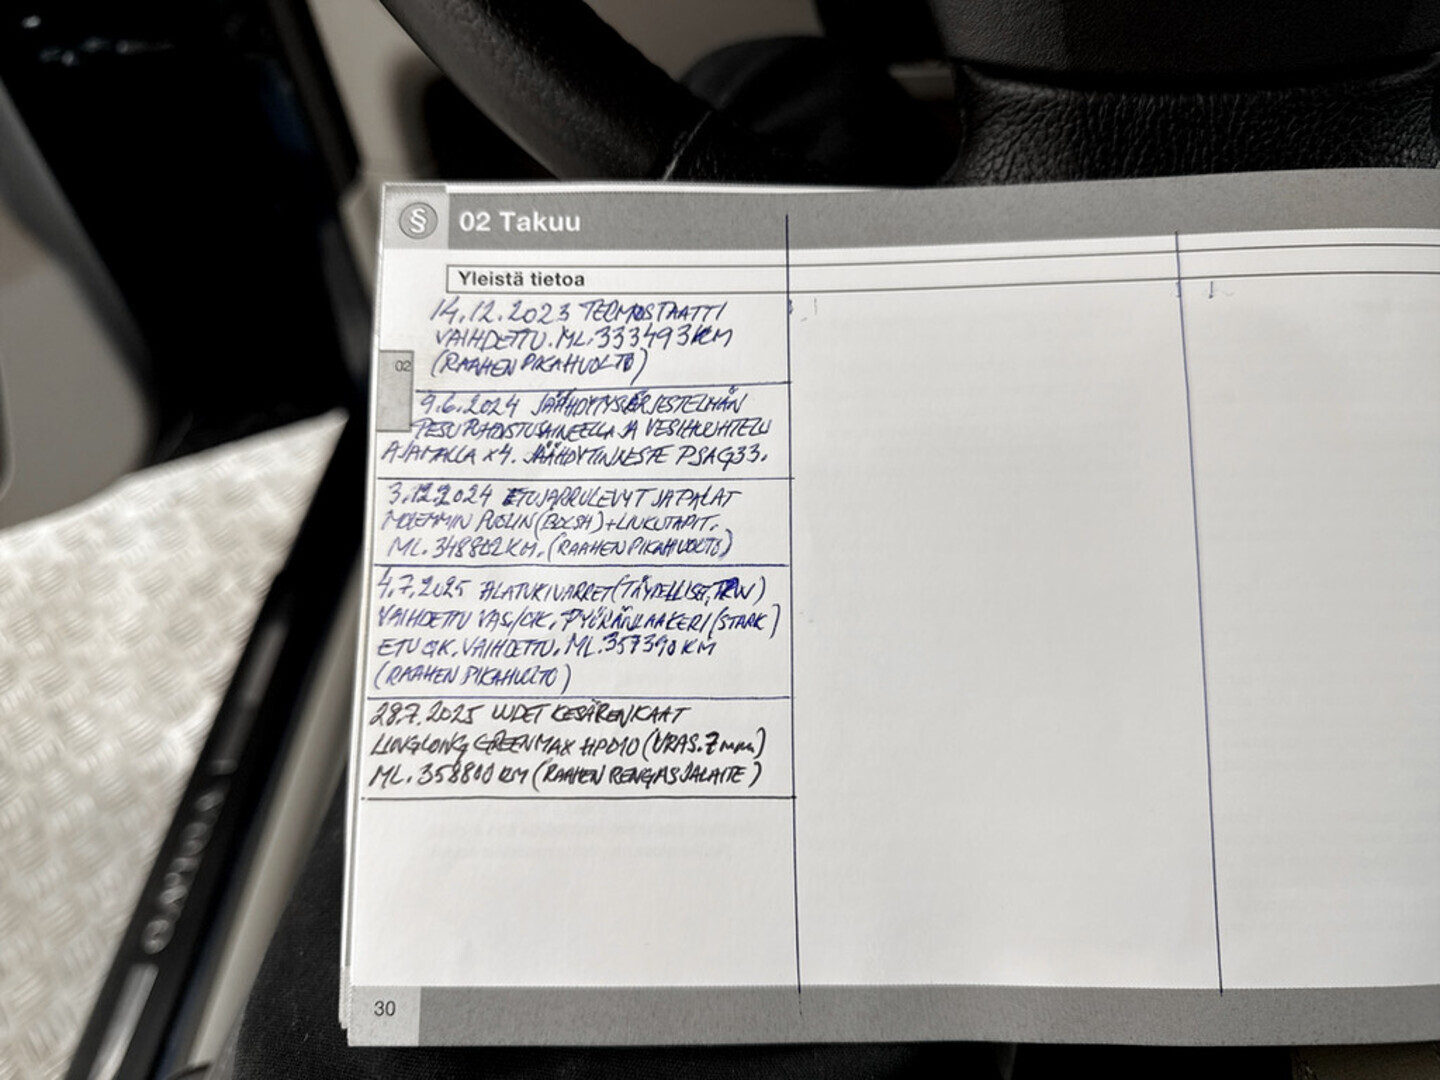 § 02 Takuu
Yleistä tietoa
14.12.2023 TERMOSTAATTI
VAIHDETTU. ML. 333493KM
(RAAHEN PIKAHUOLTO)
02
9.6.2024 JÄÄHDYTYSJÄRJESTELMÄN
PESU PUHDISTUSAINEELLA JA VESIHUUHTELU
AJAMALLA x4. JÄÄHDYTINNESTE PSAG33.
3.12.2024 ETUJARRULEVYT JA PALAT
MOLEMMIN PUOLIN (BOSH) + LIUKUTAPIT.
ML. 348802KM. (RAAHEN PIKAHUOLTO)
4.7.2025 ALATUKIVARRET (TÄYDELLISET, TRW)
VAIHDETTU VAS/OIK. PYÖRÄNLAAKERI (STARK)
ETU OIK. VAIHDETTU. ML. 357390 KM
(RAAHEN PIKAHUOLTO)
28.7.2025 UUDET KESÄRENKAAT
LINGLONG GREENMAX HP010 (URAS. 7mm)
ML. 358800 KM (RAAHEN RENGAS JALAITE)
30
VOLVO